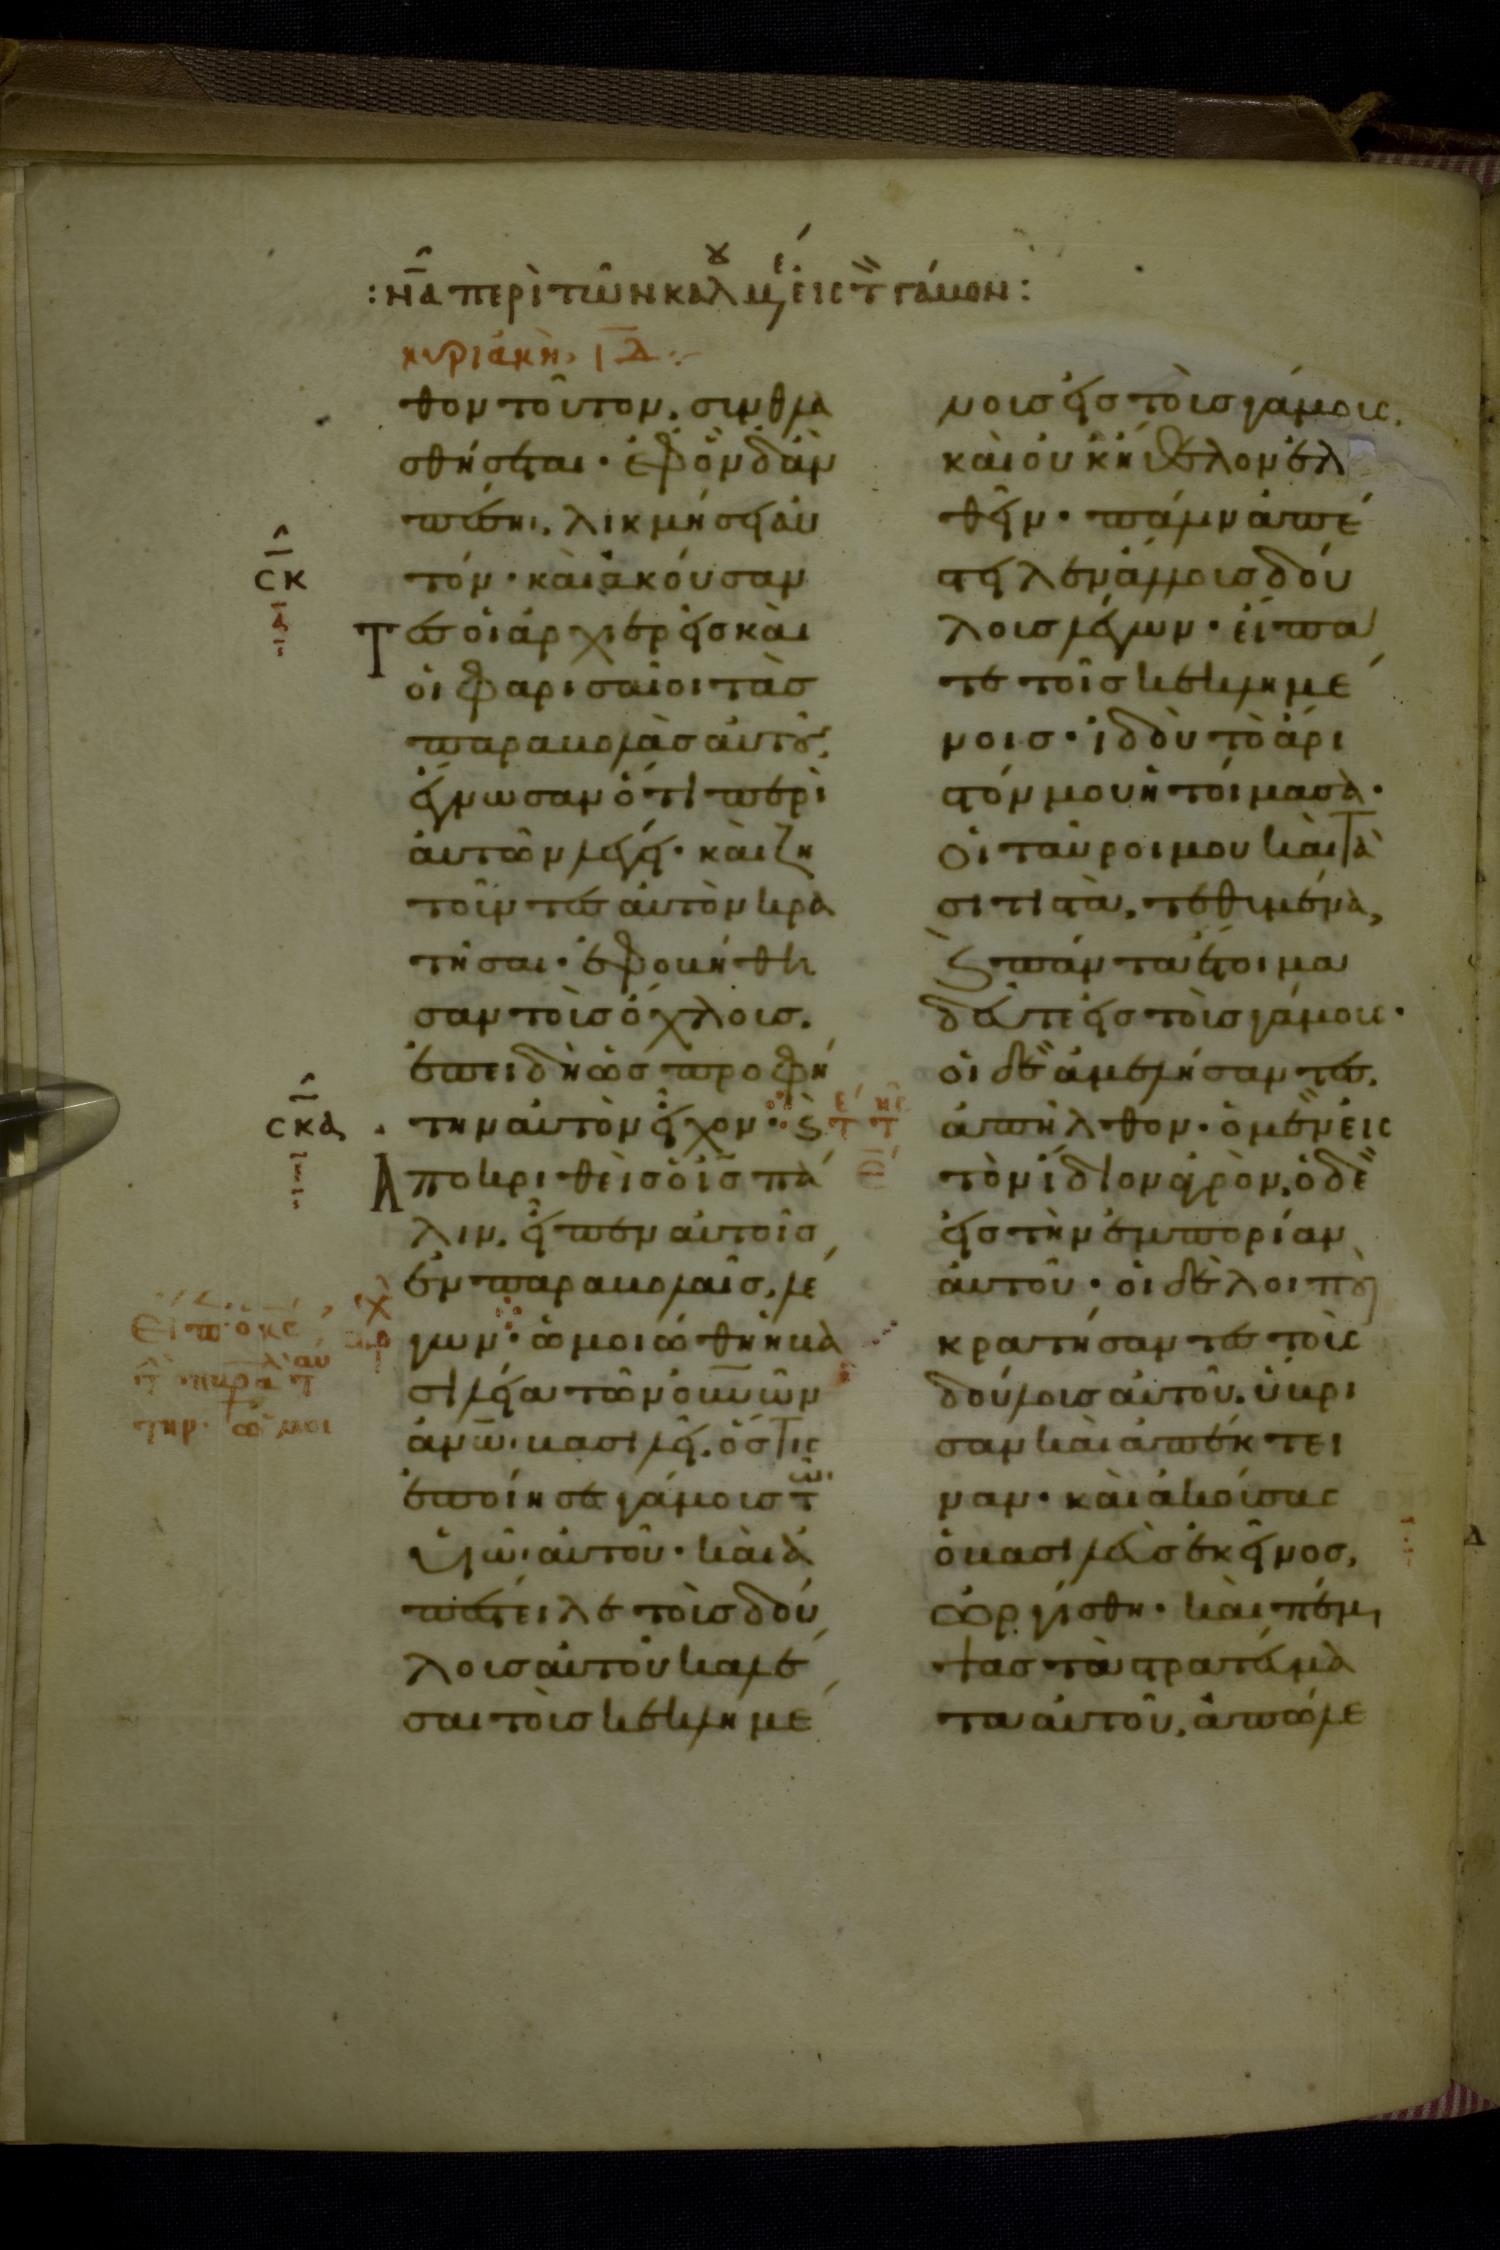 : ν̅α περὶ τῶν καλουμένων εἰς τ̅ γάμον :
κυριάκὴ. ιδ
θον τοῦτον. συνθλα
σθήσεται · ἐφ ὃν δὰν
πέσηι, λικμήσει ἀυ
τόν · καὶ ἀκούσαν
τες οἱ ἀρχιερεῖς καὶ
οἱ φαρισαίοι τὰς
παραβολὰς ἀυτοῦ,
ἔγνωσαν ὅτι περὶ
ἀυτῶν λέγει · καὶ ζη
τοῦντες ἀυτὸν κρα
τῆσαι · ἐφοβήθη
σαν τοὺς όχλους.
ἐπειδὴ ὡς προφή
την ἀυτὸν εἶχον ·
Ἀποκριθεὶς ὁ ι̅ς πά
λιν. εἶπεν αὐτοῖς
ἐν παραβολαῖς, λέ
γων · ὡμοιώθη ἡ βα
σιλεία τῶν ὀυν̅ῶν
ἀνω̅ βασιλεῖ. ὅστις
ἐποίησε γάμους τῶ
υἱῶ ἀυτοῦ · καὶ ἀ
πέστειλε τοὺς δού
λους αὐτοῦ καλέ
σαι τοὺς κεκλημέ
νους εἰς τοὺς γάμους.
καὶ οὐκ ήθελον ἐλ
θεῖν · πάλιν ἀπέ
στειλεν ἄλλους δού
λους λέγων · εἴπα
τε τοῖς κεκλημέ
νοις · ἰδοὺ τὸ ἄρι
στόν μου ἡτοίμασα ·
οἱ ταῦροι μου καὶ τὰ
σιτιστὰ, τεθυμένα,
ϗ πάντα ἕτοιμα
δεῦτε εἰς τοὺς γάμους ·
οἱ δὲ ἀμελήσαντες,
ἀπῆλθον · ὁ μὲν εἰς
τὸν ἴδιον ἀγρὸν, ὁ δὲ
εἰς τὴν ἐμπορίαν
ἀυτοῦ · οἱ δὲ λοιποὶ
κρατήσαντες τοὺς
δούλους ἀυτοῦ. ὕβρι
σαν καὶ ἀπέκτει
ναν · καὶ ἀκούσας
ὁ βασιλεὺς ἐκεῖνος,
ὠργίσθη · καὶ πέμ
ψας τὰ στρατεύμα
τα ἀυτοῦ, ἀπώλε
σκ
σκα